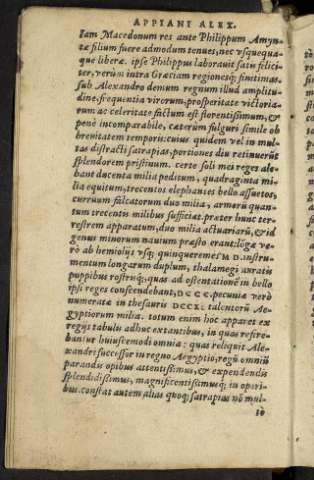 APPIANI ALEX.
Iam Macedonum res ante Philippum Amyn-
tæ filium fuere admodum tenues, nec vsquequa-
que liberæ. ipse Philippus laborauit satis felici-
ter, verùm intra Græciam regionesq; finitimas.
sub Alexandro demum regnum illud amplitu-
dine, frequentia virorum, prosperitate victoria-
rum ac celeritate factum est florentissimum, &
penè incomparabile, cæterùm fulguri simile ob
breuitatem temporis: cuius quidem vel in mul-
tas distracti satrapias, portiones diu retinuerūt
splendorem pristinum. certe soli mei reges ale-
bant ducenta milia peditum, quadraginta mi-
lia equitum, trecentos elephantes bello assuetos,
curruum falcatorum duo milia, armorū quan-
tum trecentis milibus sufficiat. præter hunc ter-
restrem apparatum, duo milia actuariorū, & id
genus minorum nauium præsto erant: lōgæ ve-
rò ab hemiolijs vsq; quinqueremes M D. instru-
mentum longarum duplum, thalamegi auratis
puppibus rostrisq;, quas ad ostentationē in bello
ipsi reges conscendebant, DCCC. pecuniæ verò
numeratæ in thesauris DCCXL talentorū Ae-
gyptiorum milia. totum enim hoc apparet ex
regijs tabulis adhuc extantibus, in quas refere-
bantur huiuscemodi omnia: quas reliquit Ale-
xandri successor in regno Aegyptio, regū omniū
parandis opibus attentissimus, & expendendis
splendidissimus, magnificentissimusq; in operi-
bus. constat autem alias quoq; satrapias nō mul-
tò